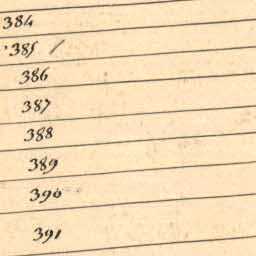 384
385 /
386
387
388
389
390
391